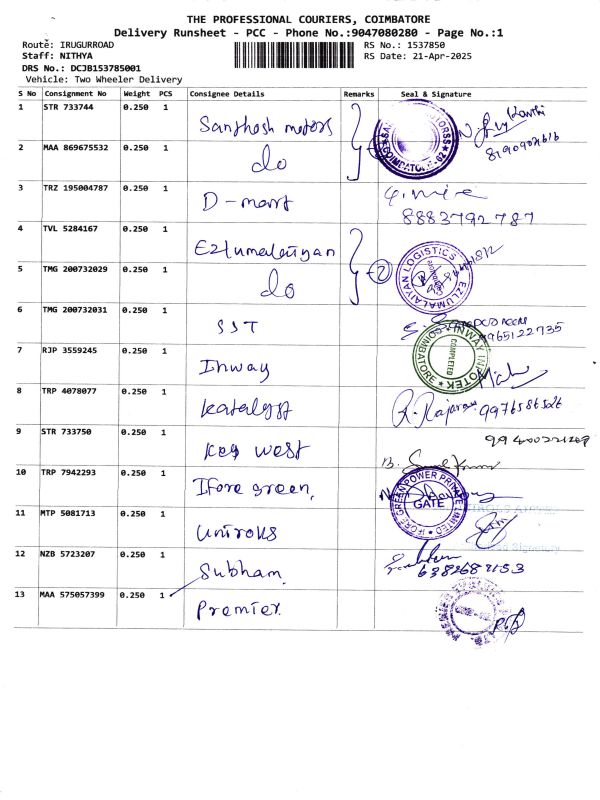 THE PROFESSIONAL COURIERS, COIMBATORE
Delivery Runsheet - PCC - Phone No.:9047080280 - Page No.:1
Route: IRUGURROAD
Staff: NITHYA
DRS No.: DCJB153785001
Vehicle: Two Wheeler Delivery
RS No.: 1537850
RS Date: 21-Apr-2025
S No Consignment No Weight PCS Consignee Details Remarks Seal & Signature
1 STR 733744 0.250 1 Santhosh motors
2 MAA 869675532 0.250 1 do
3 TRZ 195004787 0.250 1 D-mart 8883792787
4 TVL 5284167 0.250 1 Ezlumalaiyan EZLUMALAIYAN LOGISTICS
5 TMG 200732029 0.250 1 do 2
6 TMG 200732031 0.250 1 SST 9965122735
7 RJP 3559245 0.250 1 Inway INWAY INFOTEK COIMBATORE COMPLETED
8 TRP 4078077 0.250 1 Katalyst R. Rajaram
9 STR 733750 0.250 1 Key west
10 TRP 7942293 0.250 1 Ifore green. IFORE GREEN POWER PRIVATE LIMITED GATE
11 MTP 5081713 0.250 1 Uniroks
12 NZB 5723207 0.250 1 Subham
13 MAA 575057399 0.250 1 Premier.